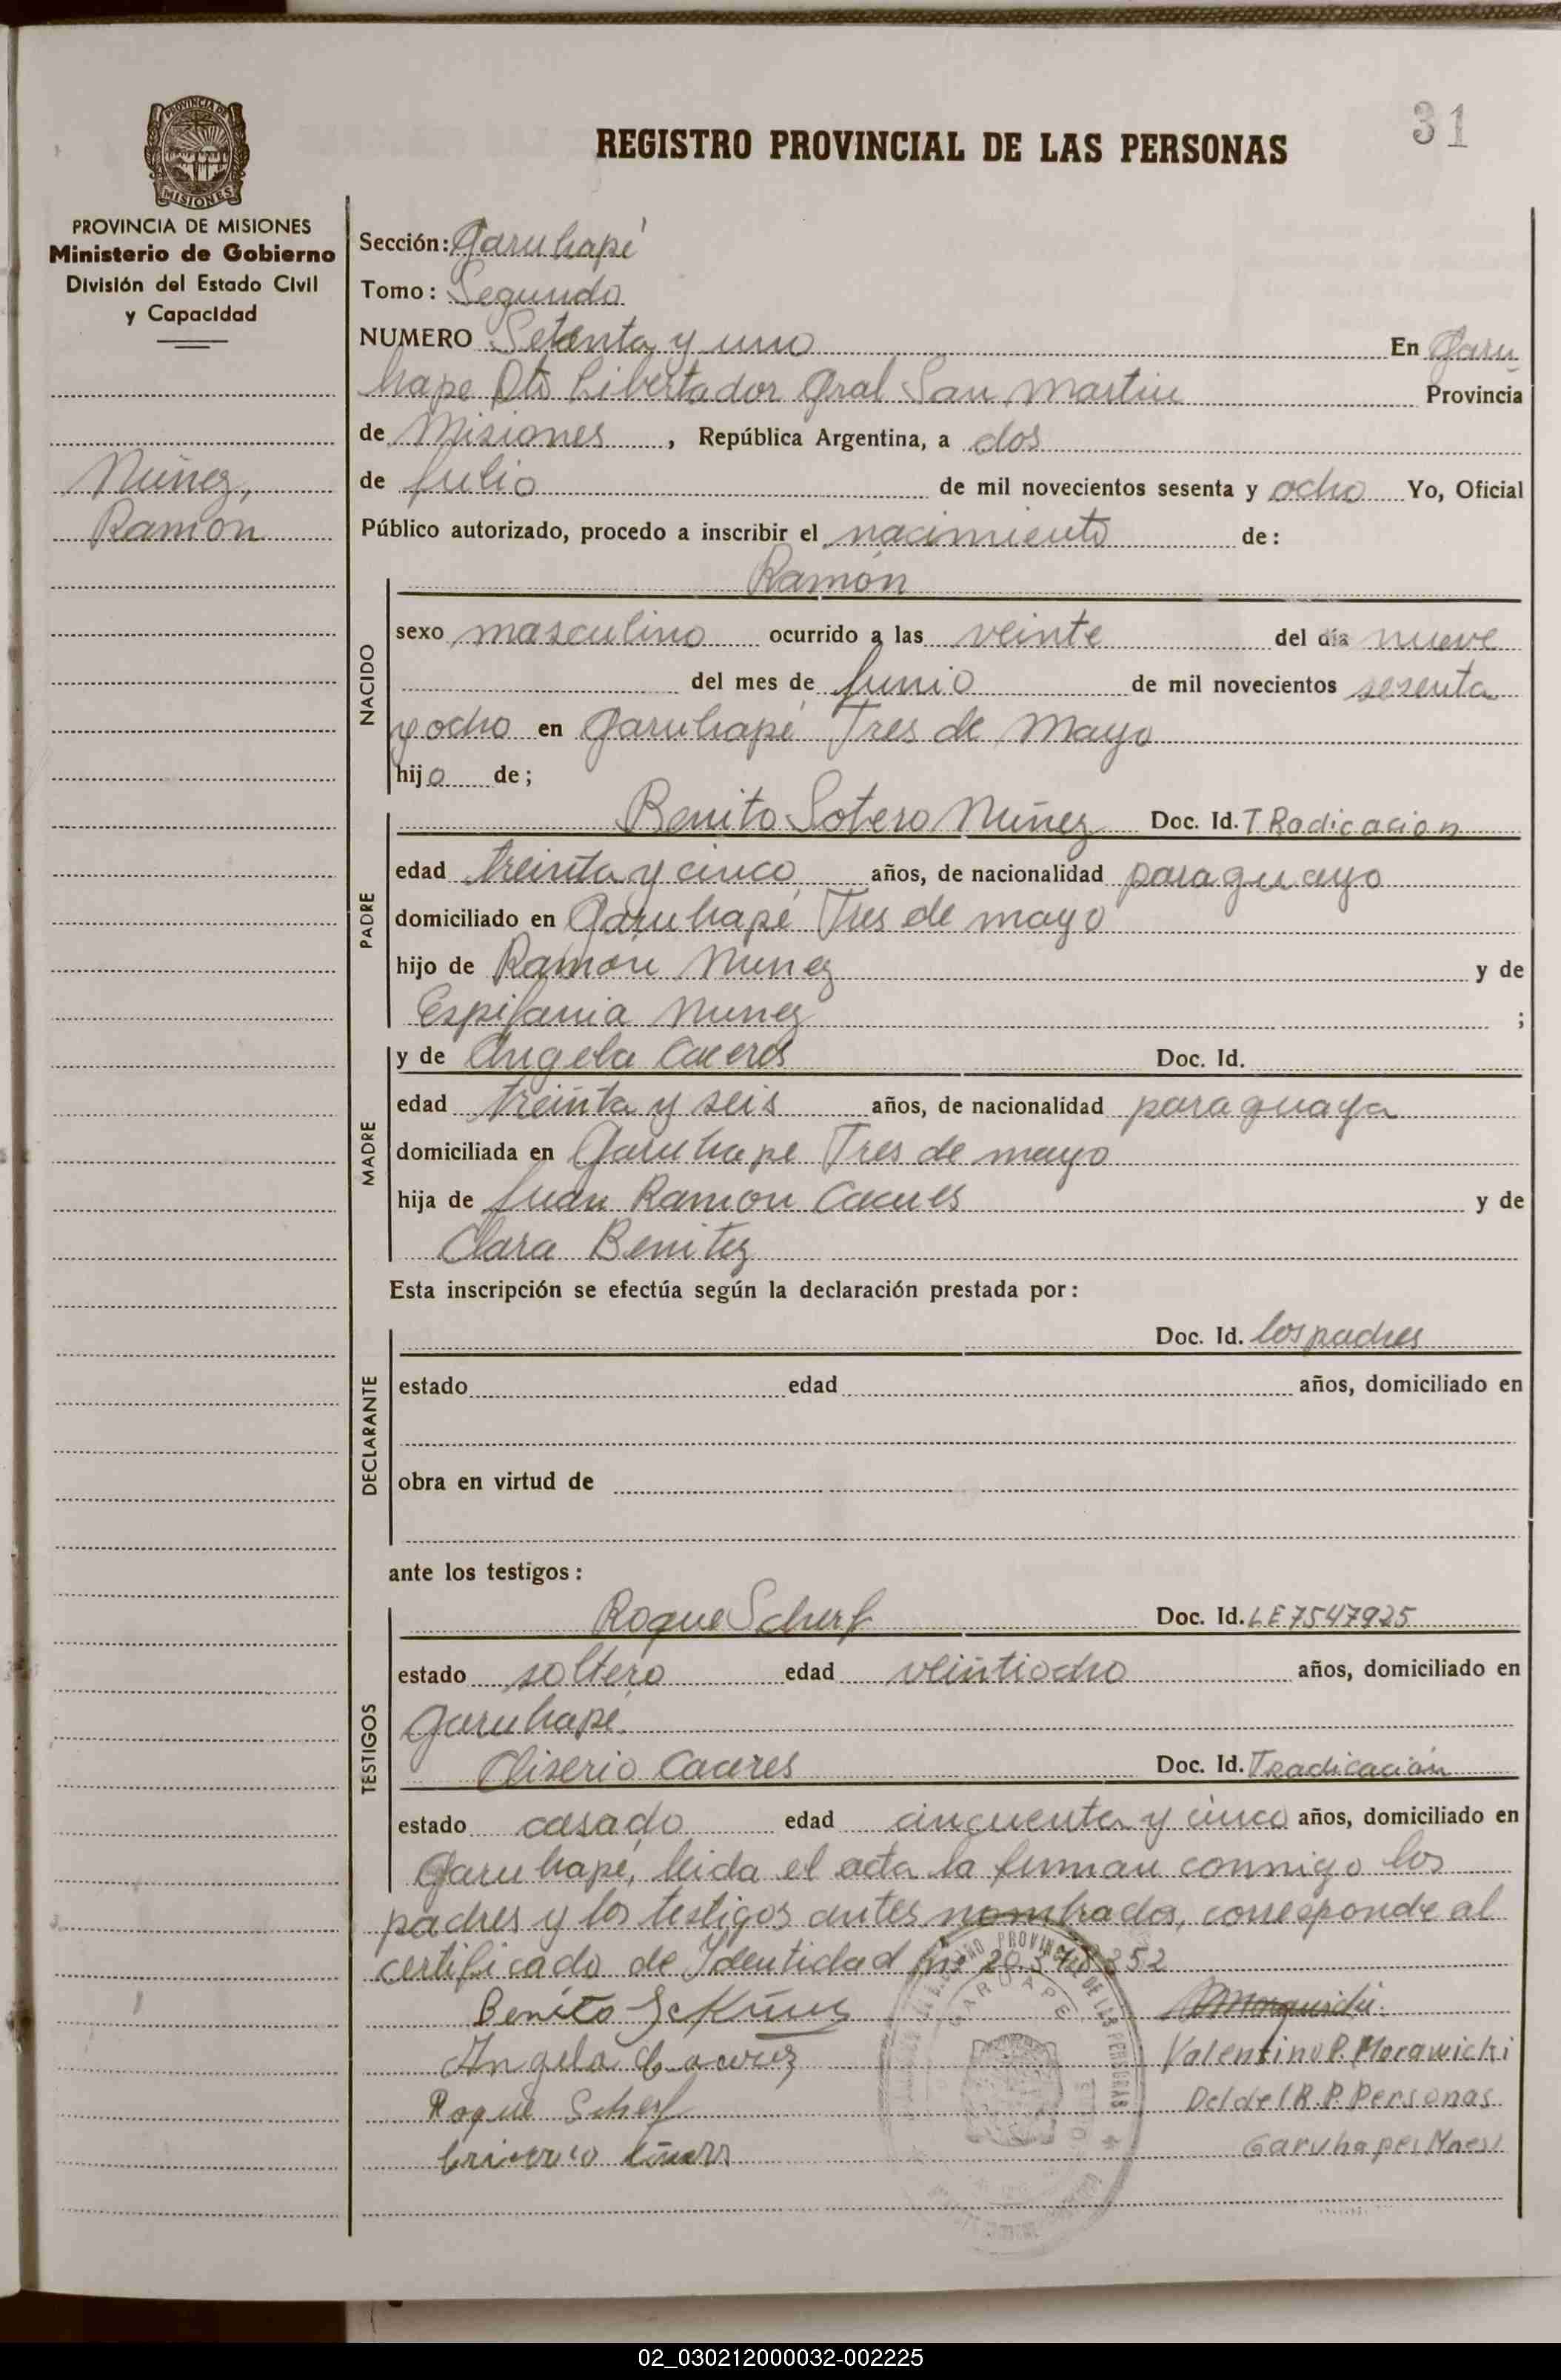 31
REGISTRO PROVINCIAL DE LAS PERSONAS
PROVINCIA DE MISIONES
PROVINCIA DE MISIONES
Ministerio de Gobierno
División del Estado Civil
y Capacidad
Nuñez,
Ramón
Sección: Garuhapé
Tomo: Segundo
NUMERO Setenta y uno En Garu
hape Dto Libertador Gral San Martin Provincia
de Misiones, República Argentina, a dos
de Julio de mil novecientos sesenta y ocho Yo, Oficial
Público autorizado, procedo a inscribir el nacimiento de:
Ramón
NACIDO
sexo masculino ocurrido a las veinte del día nueve
del mes de Junio de mil novecientos sesenta
y ocho en Garuhapé Tres de Mayo
hijo de;
PADRE
Benito Sotero Nuñez Doc. Id. T Radicacion
edad treinta y cinco años, de nacionalidad paraguayo
domiciliado en Garuhapé Tres de mayo
hijo de Ramón Nunez y de
Espifania Nunez ;
MADRE
y de Angela Caceres Doc. Id.
edad treinta y seis años, de nacionalidad paraguaya
domiciliada en Garuhape Tres de mayo
hija de Juan Ramon Caceres y de
Clara Benitez
Esta inscripción se efectúa según la declaración prestada por:
DECLARANTE
Doc. Id. los padres
estado edad años, domiciliado en
obra en virtud de
ante los testigos:
TESTIGOS
Roque Scherf Doc. Id. LE 7547925
estado soltero edad veintiocho años, domiciliado en
Garuhapé.
Oliserio Caceres Doc. Id. T radicación
estado casado edad cincuenta y cinco años, domiciliado en
Garuhapé, leida el acta la firman conmigo los
padres y los testigos antes nombrados, corresponde al
certificado de Identidad
Benito
Angela
Roque Scherf
Valentino P. Morawicki
Del del R.P. Personas
GARUAPE
02_030212000032-002225